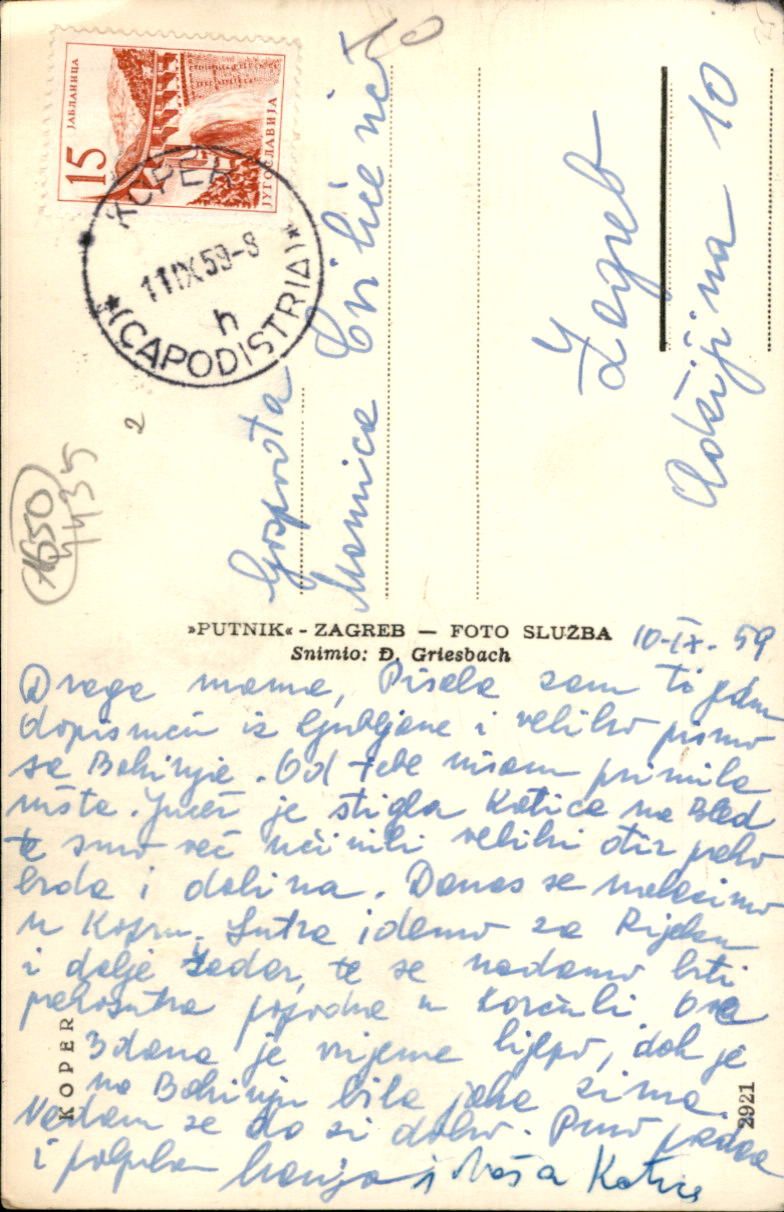 15
ЈАБЛАНИЦА
ЈУГОСЛАВИЈА
KOPER
11 IX 59-8
h
(CAPODISTRIA)
2
1650
4435
Gospođa
Zagreb
10
»PUTNIK« - ZAGREB — FOTO SLUŽBA
Snimio: Đ. Griesbach
10-IX-59
Draga mama, Pisala sam ti jednu
dopisnicu iz Ljubljane i veliko pismo
sa Bohinja. Od tebe nisam primila
ništa. Jučer je stigla Katica na Bled
te smo već učinili veliki preko
brda i dolina. Danas se nalazimo
u Kopru. Sutra idemo za Rijeku
i dalje Zadar, te se nadamo biti
prekosutra popodne u Korčuli. Ova
3 dana je vrijeme lijepo, dok je
na Bohinju bila jaka zima.
Nadam se da si dobro. Puno
i i Vaša Katica
KOPER
2921